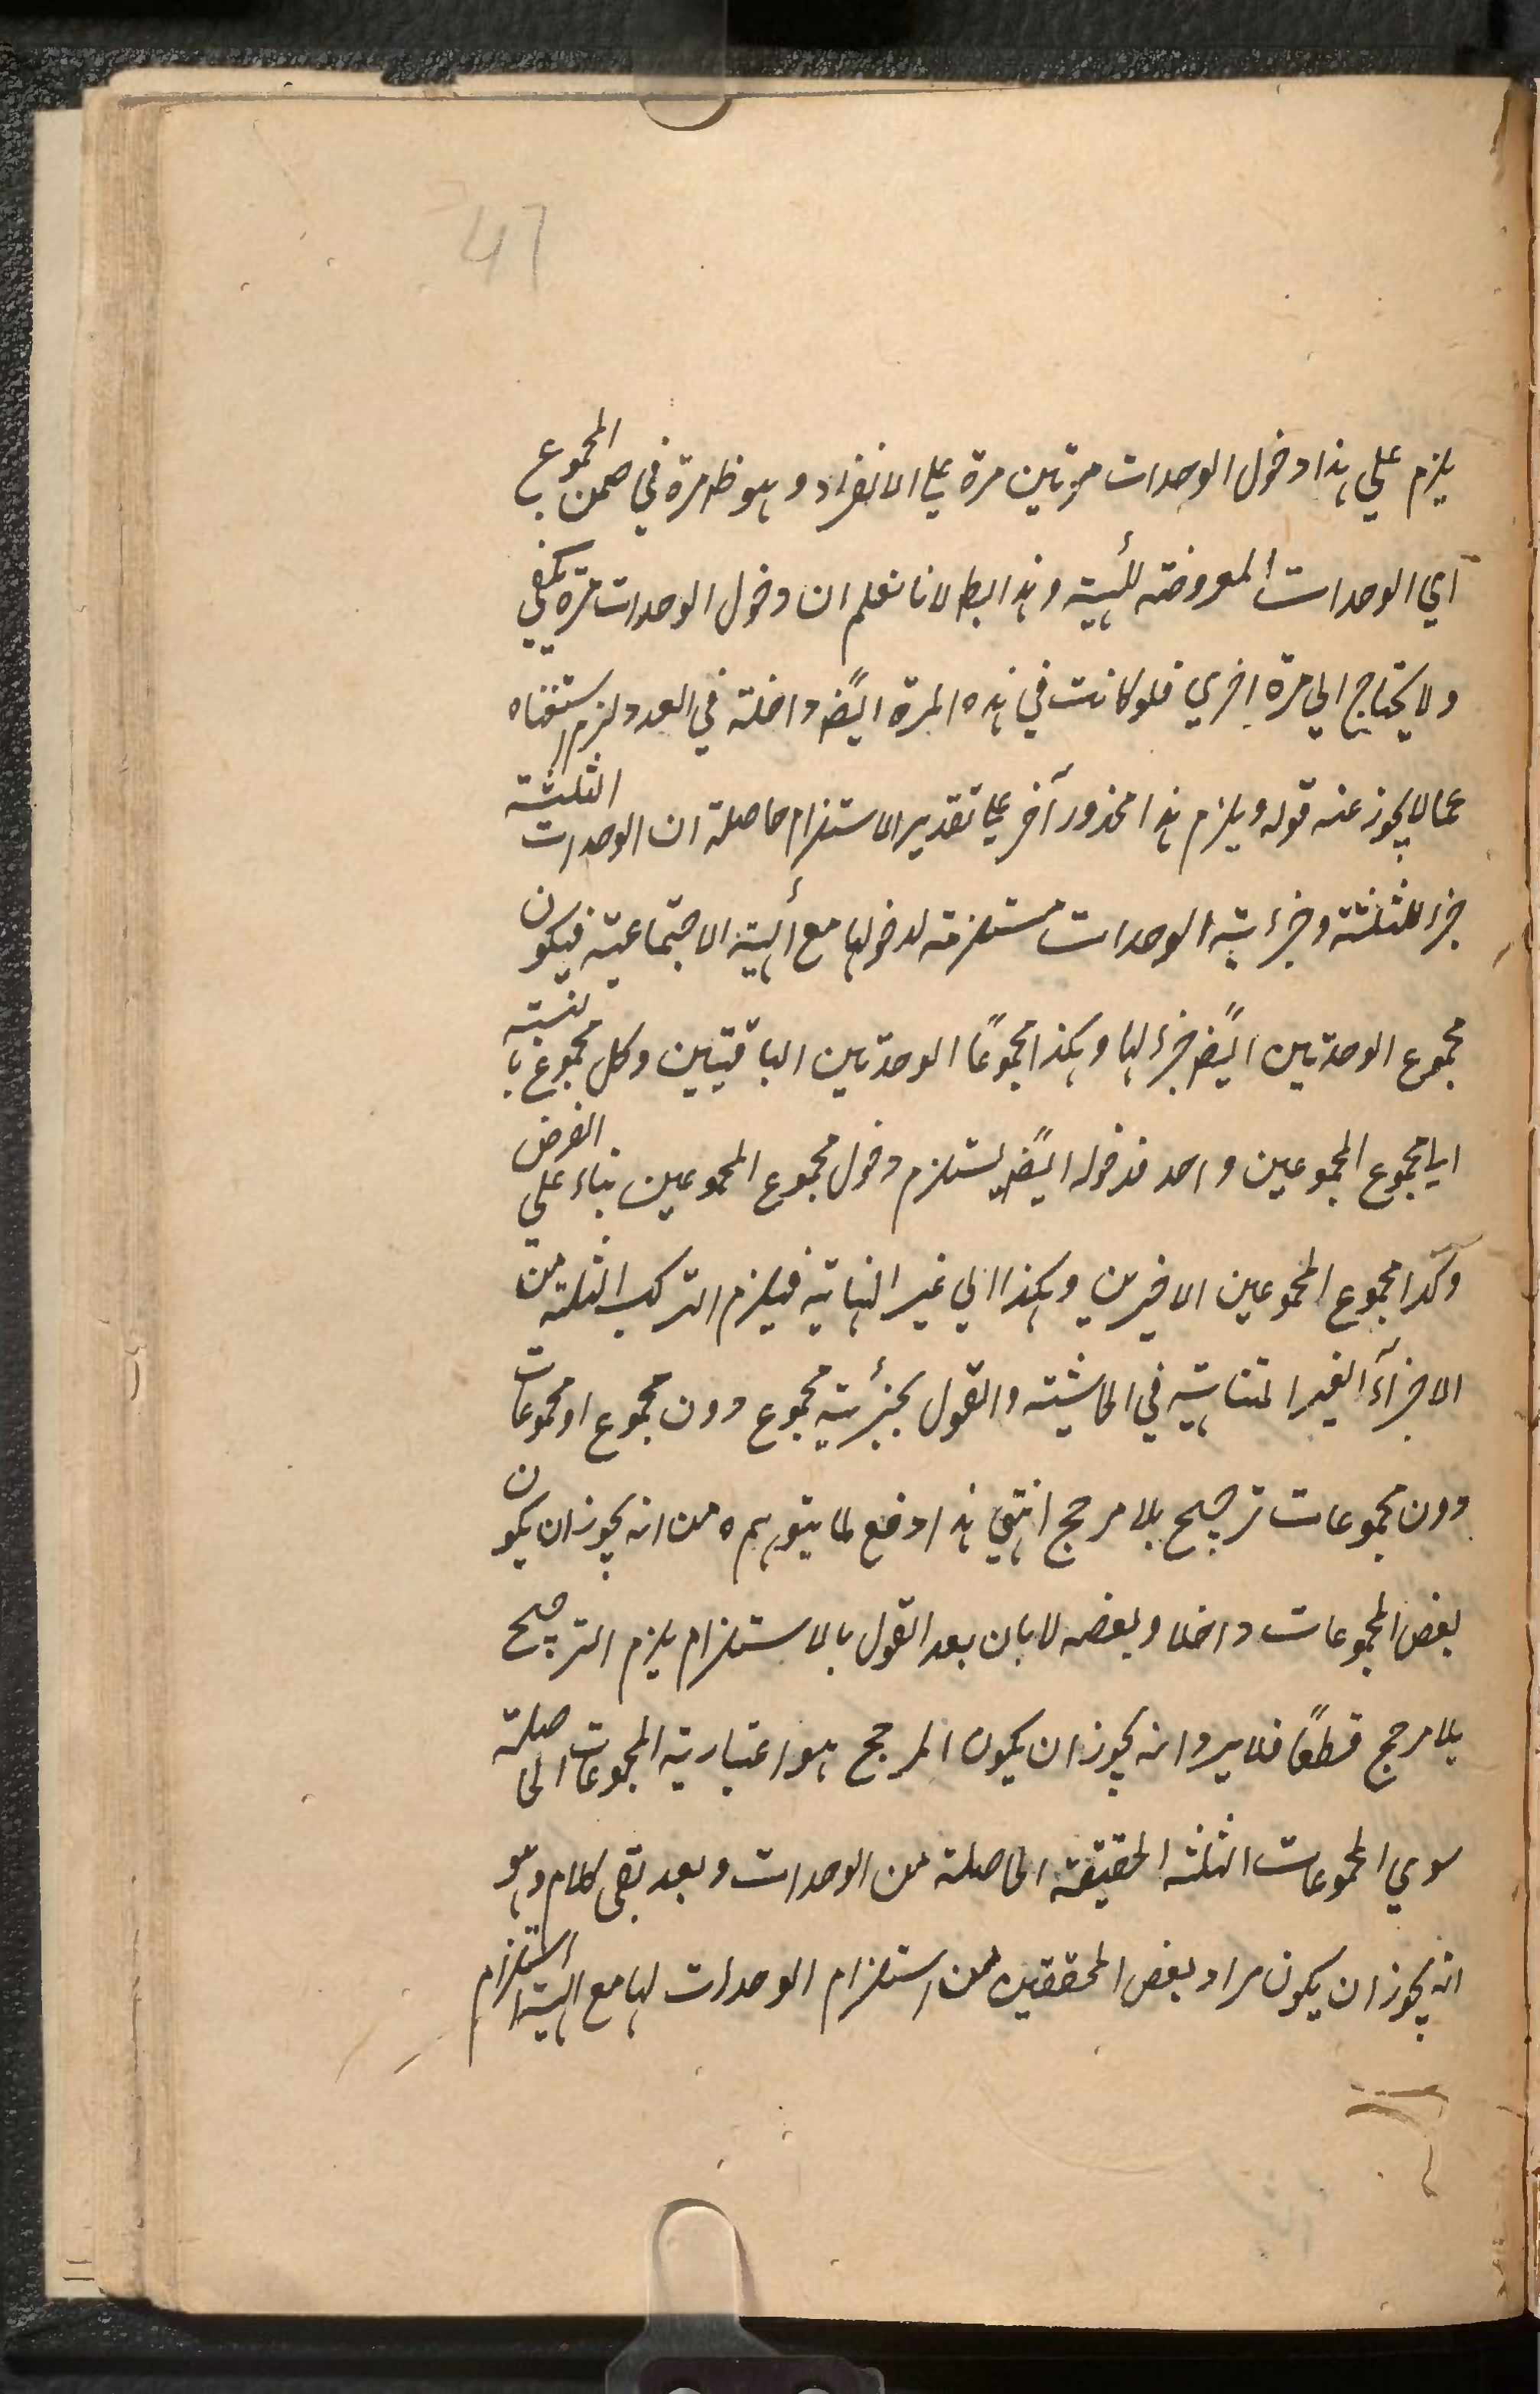 47
يلزم على هذا دخول الوحدات مرتين مرة على الانفراد وهو ظ مرة في ضمن المجموع
اي الوحدات المعروضة للهيئة وهذا بط لانا نعلم ان دخول الوحدات مرة يكفي
ولا يحتاج الى مرة اخرى فلو كانت في هذه المرة ايضً داخلة في العدد لزم استغناه
عما لا يجوز عنه قوله ويلزم هذا محذور آخر على تقدير الاستلزام حاصلة ان الوحدات الثلثة
جزء للثلثة وجزءية الوحدات مستلزمة لدخولها مع الهيئة الاجتماعية فيكون
مجموع الوحدتين ايضً جزء لها وهكذا مجموعًا الوحدتين الباقيتين وكل مجموع بالنسبة
الى مجموع المجموعين واحد فدخوله ايضً يستلزم دخول مجموع المجموعين بناء على الفرض
وكذا مجموع المجموعين الاخيرين وهكذا الى غير النهاية فيلزم التركب الثلثة من
الاجزآء الغير المتناهية في الحاشية والقول بجزئية مجموع دون مجموع او مجموعات
دون مجموعات ترجيح بلا مرجح انتهى هذا دفع لما يتوهم ه من انه يجوز ان يكون
بعض المجموعات داخلا وبعضه لا بان بعد القول بالاستلزام يلزم الترجيح
بلا مرجح قطعًا فلا يرد انه يجوز ان يكون المرجح هو اعتبارية المجموعات الحاصلة
سوى المجموعات الثلثة الحقيقة الحاصلة من الوحدات وبعد بقى كلام وهو
انه يجوز ان يكون مراد بعض المحققين من استلزام الوحدات لها مع الهيئة استلزام